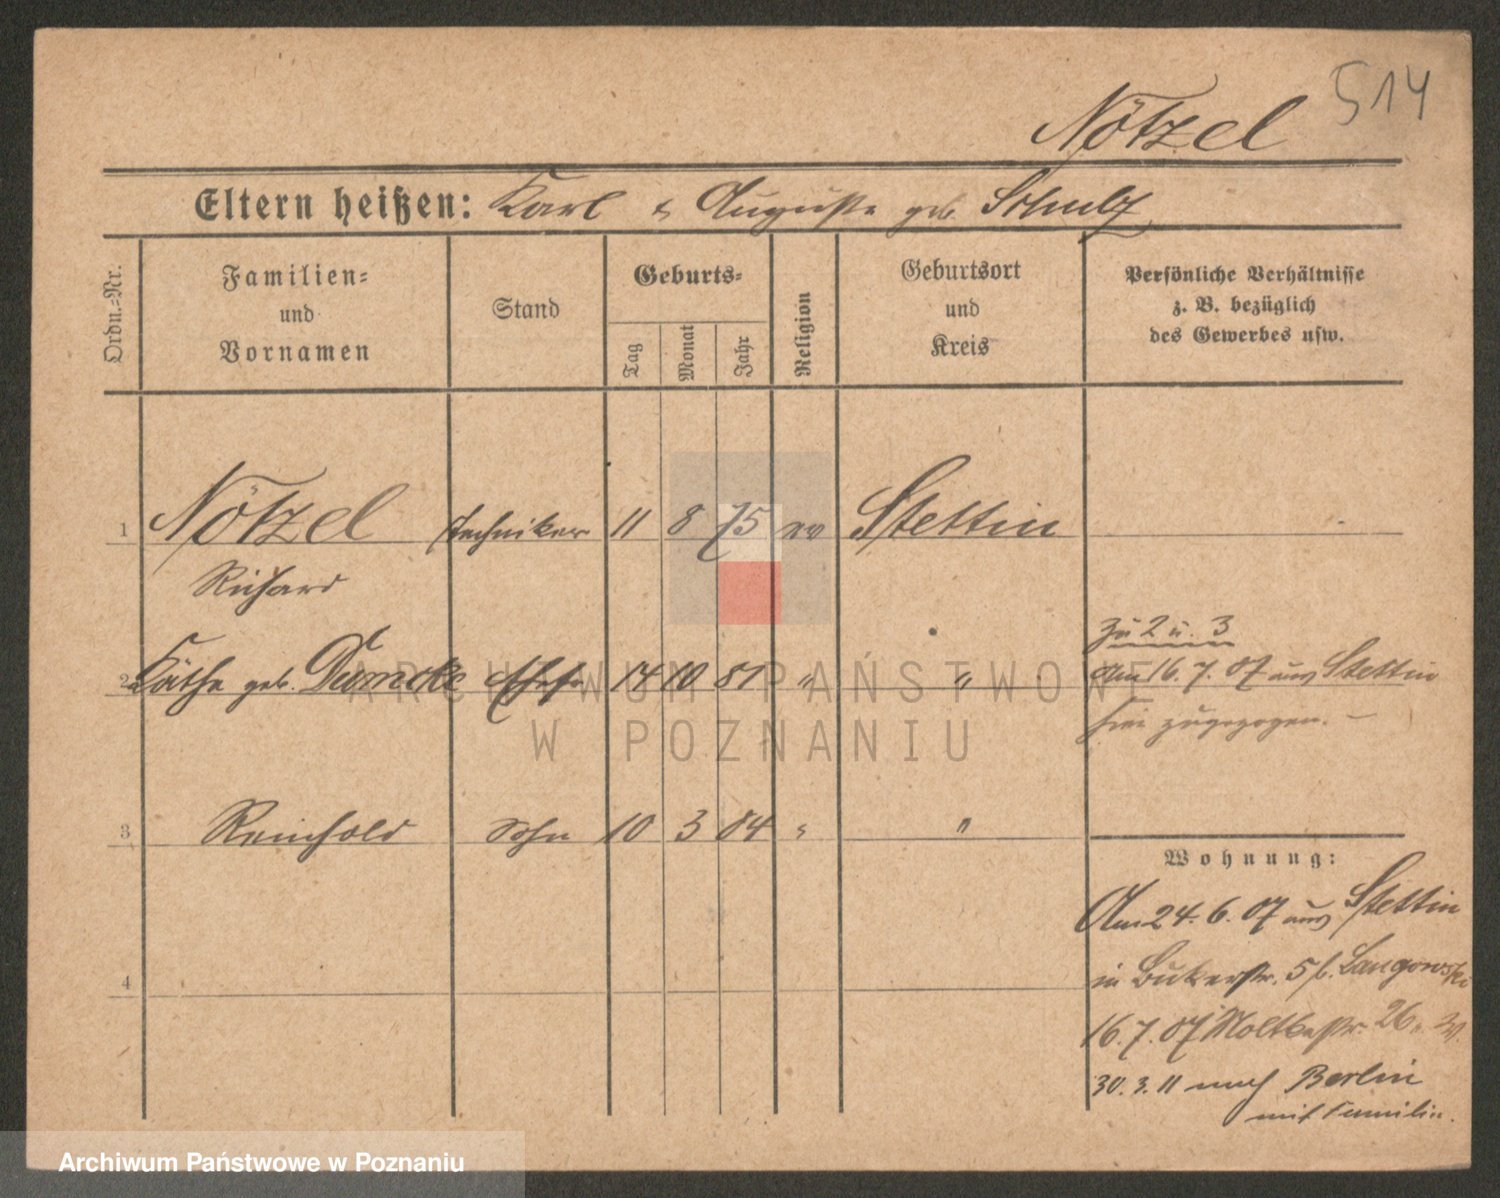 514
Nötzel
Eltern heißen: Karl & Auguste geb. Schulz
Ordn.=Nr.
Familien=
und
Vornamen
Stand
Geburts=
Tag
Monat
Jahr
Religion
Geburtsort
und
Kreis
Persönliche Verhältnisse
z. B. bezüglich
des Gewerbes usw.
1 Nötzel Techniker 11 8 75 ev Stettin
Richard
zu 2 u. 3
2 Käthe geb. Ehefr 14 10 81 " "
am 16. 7. 07 aus Stettin
hier zugezogen. –
3 Reinhold Sohn 10 3 04 " "
4
Wohnung:
Am 24. 6. 07 aus Stettin
in Bukerstr. 5 b. Langowski
16. 7. 07 Moltkestr. 26.
30. 3. 11 nach Berlin
mit Familie.
ARCHIWUM PAŃSTWOWE
W POZNANIU
Archiwum Państwowe w Poznaniu